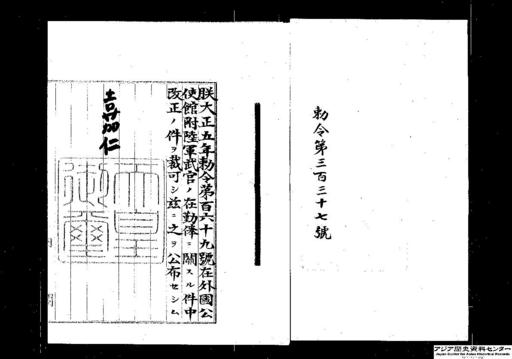 勅令第三百三十七號
朕大正五年勅令第百六十九號在外國公
使館附陸軍武官ノ在勤俸ニ關スル件中
改正ノ件ヲ裁可シ茲ニ之ヲ公布セシム
嘉仁
天皇御璽
アジア歴史資料センター
Japan Center for Asian Historical Records